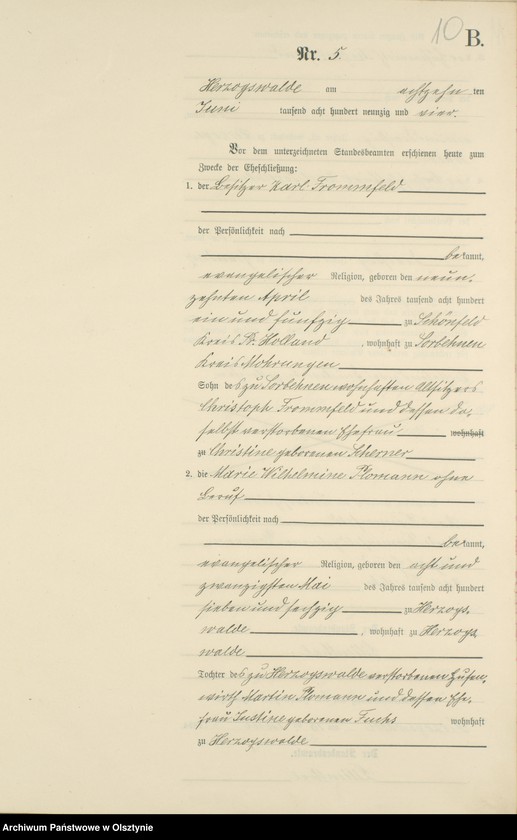 10 B.
Nr. 5.
Herzogswalde am achtzehnten
Juni tausend acht hundert neunzig und vier.
Vor dem unterzeichneten Standesbeamten erschienen heute zum
Zwecke der Eheschließung:
1. der Besitzer Karl Frommfeld
der Persönlichkeit nach
bekannt,
evangelischer Religion, geboren den neun-
zehnten April des Jahres tausend acht hundert
ein und fünfzig zu Schönfeld
Kreis Pr. Holland, wohnhaft zu Sorbehnen
Kreis Mohrungen
Sohn des zu Sorbehnen wohnhaften Altsitzers
Christoph Frommfeld und dessen da-
selbst verstorbenen Ehefrau wohnhaft
zu Christine geborenen Scherner
2. die Marie Wilhelmine Plomann ohne
Beruf
der Persönlichkeit nach
bekannt,
evangelischer Religion, geboren den acht und
zwanzigsten Mai des Jahres tausend acht hundert
sieben und sechzig zu Herzogs-
walde, wohnhaft zu Herzogs-
walde
Tochter des zu Herzogswalde verstorbenen Hufen-
wirth Martin Plomann und dessen Ehe-
frau Justine geborenen Fuchs wohnhaft
zu Herzogswalde
Archiwum Państwowe w Olsztynie